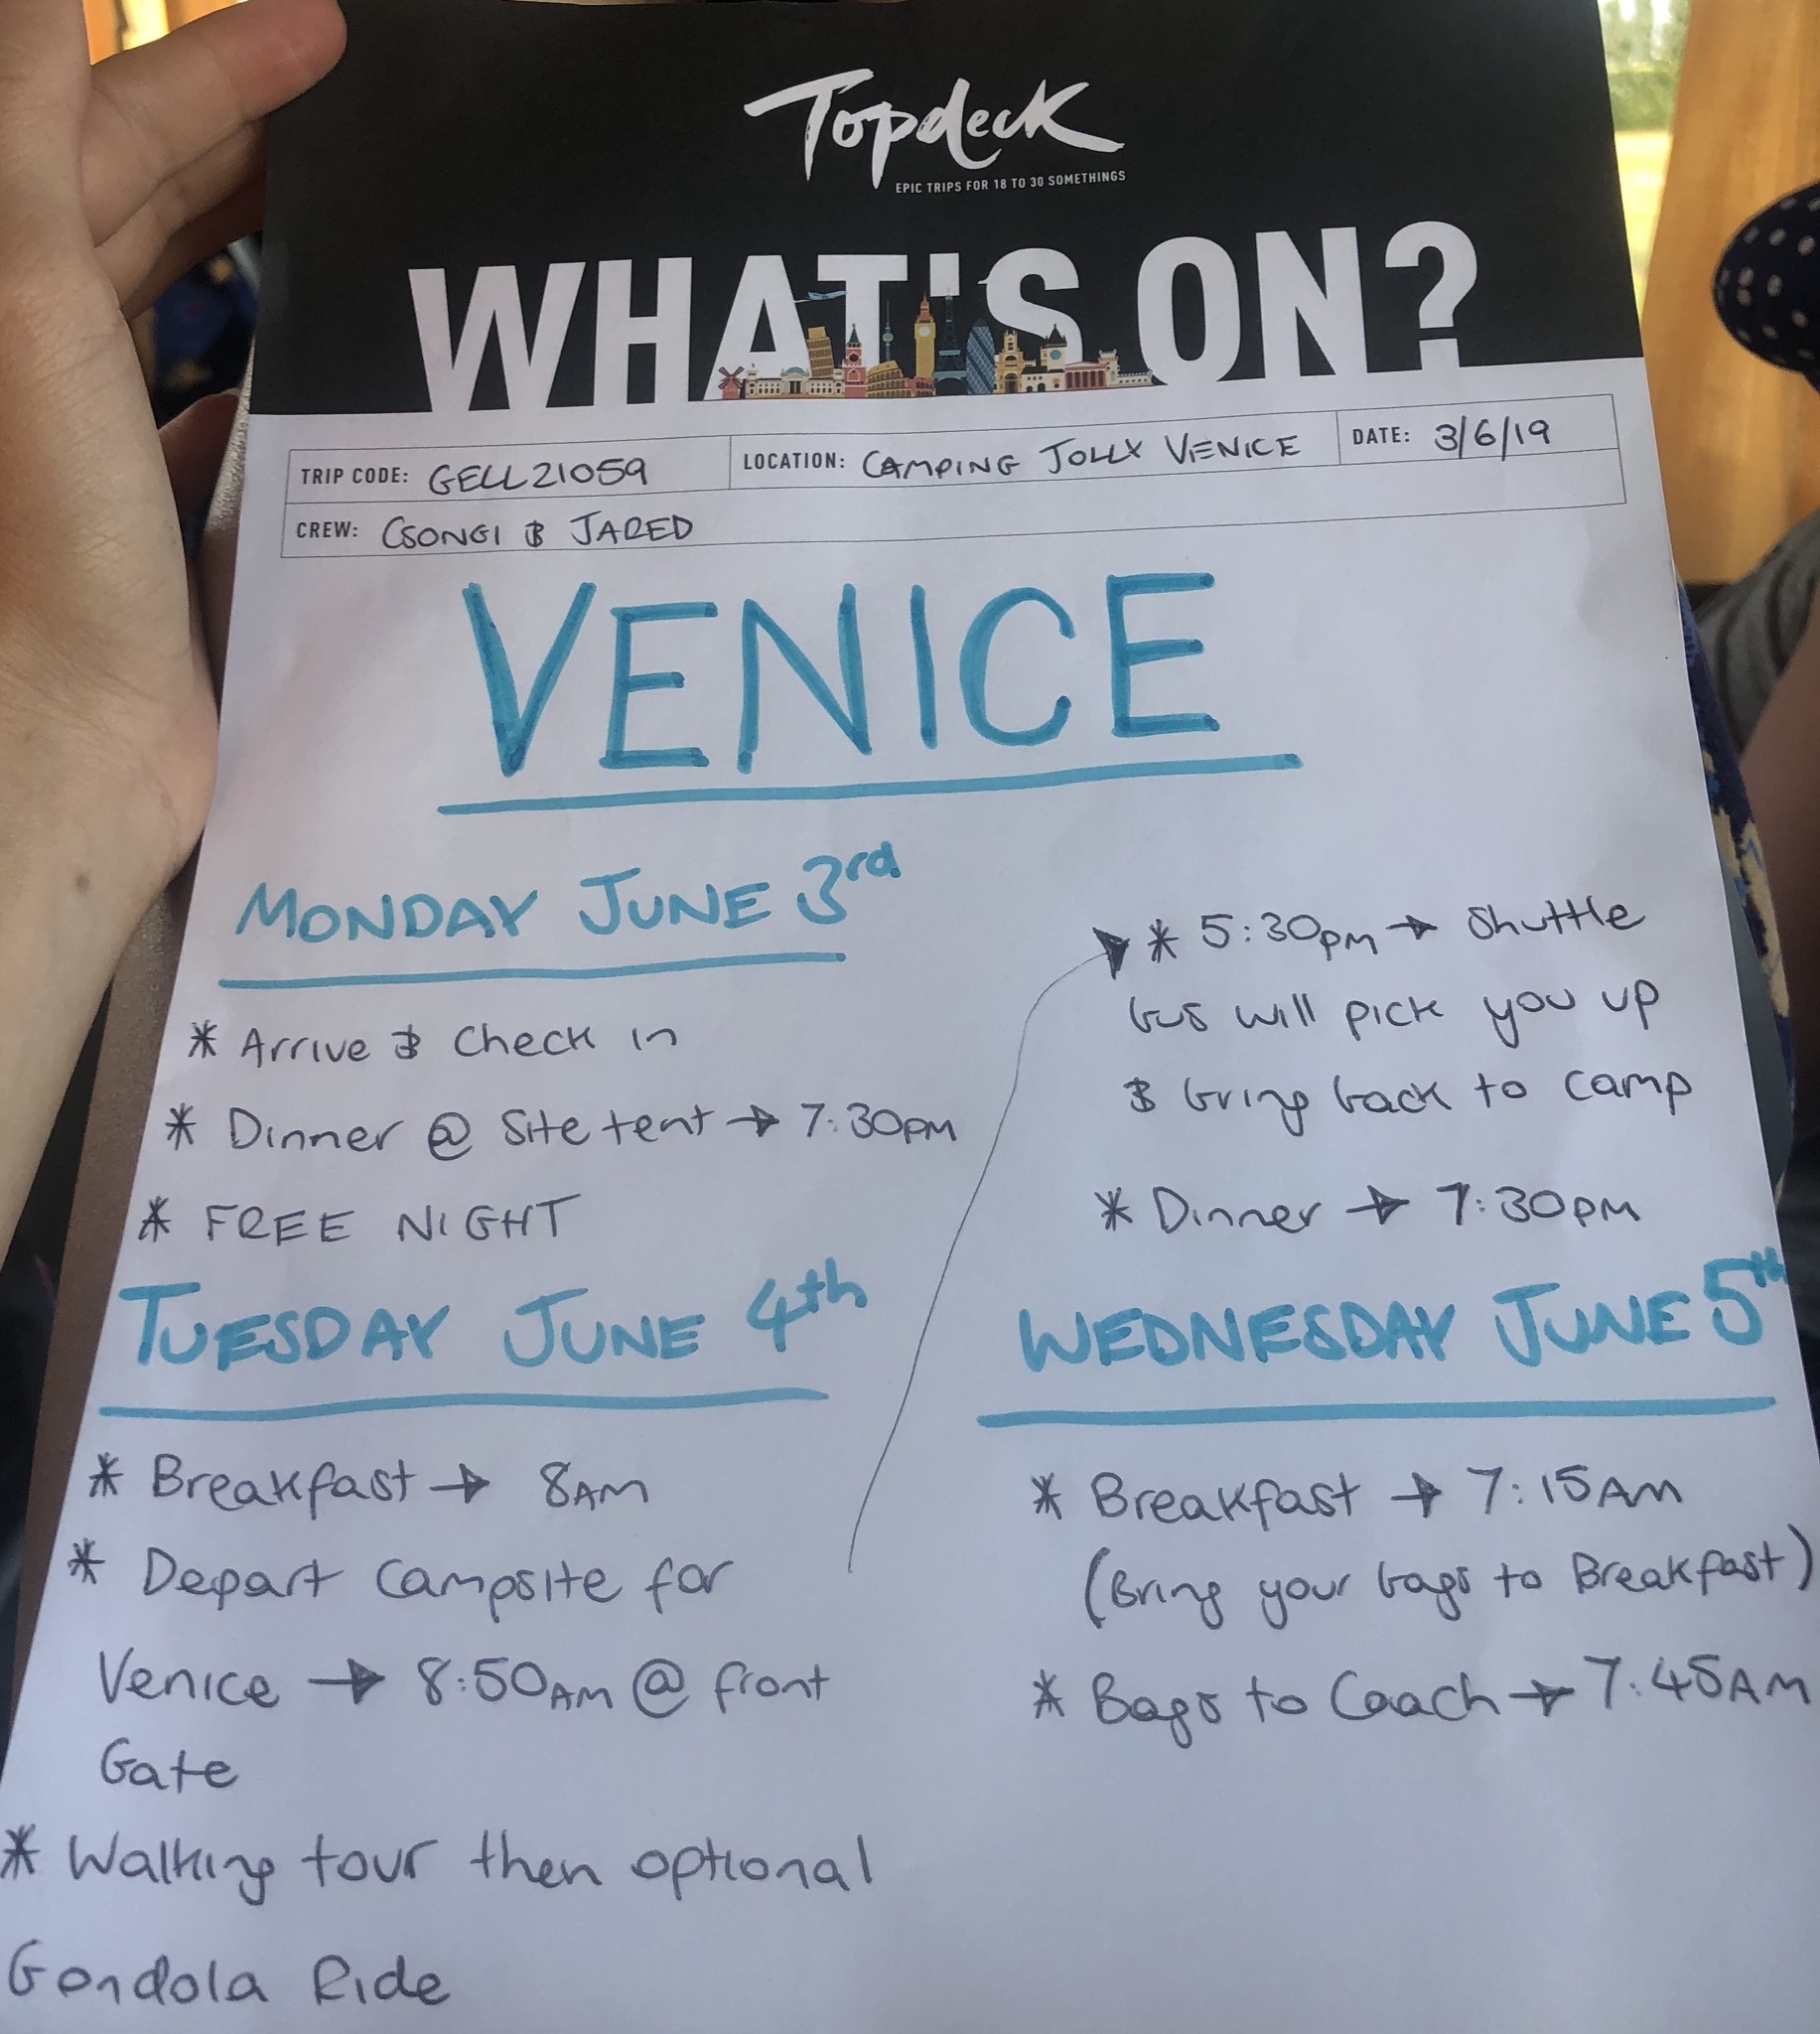 Topdeck
EPIC TRIPS FOR 18 TO 30 SOMETHINGS
WHAT'S ON?
TRIP CODE: GELL21059
LOCATION: CAMPING JOLLY VENICE
DATE: 3/6/19
CREW: CSONGI & JARED
VENICE
MONDAY JUNE 3rd
* Arrive & Check in
* Dinner @ Site tent → 7:30PM
* FREE NIGHT
TUESDAY JUNE 4th
* Breakfast → 8AM
* Depart Campsite for
Venice → 8:50AM @ front
Gate
* Walking tour then optional
Gondola Ride
* 5:30pm → Shuttle
bus will pick you up
& bring back to camp
* Dinner → 7:30PM
WEDNESDAY JUNE 5th
* Breakfast → 7:15AM
(Bring your bags to Breakfast)
* Bags to Coach → 7:45AM